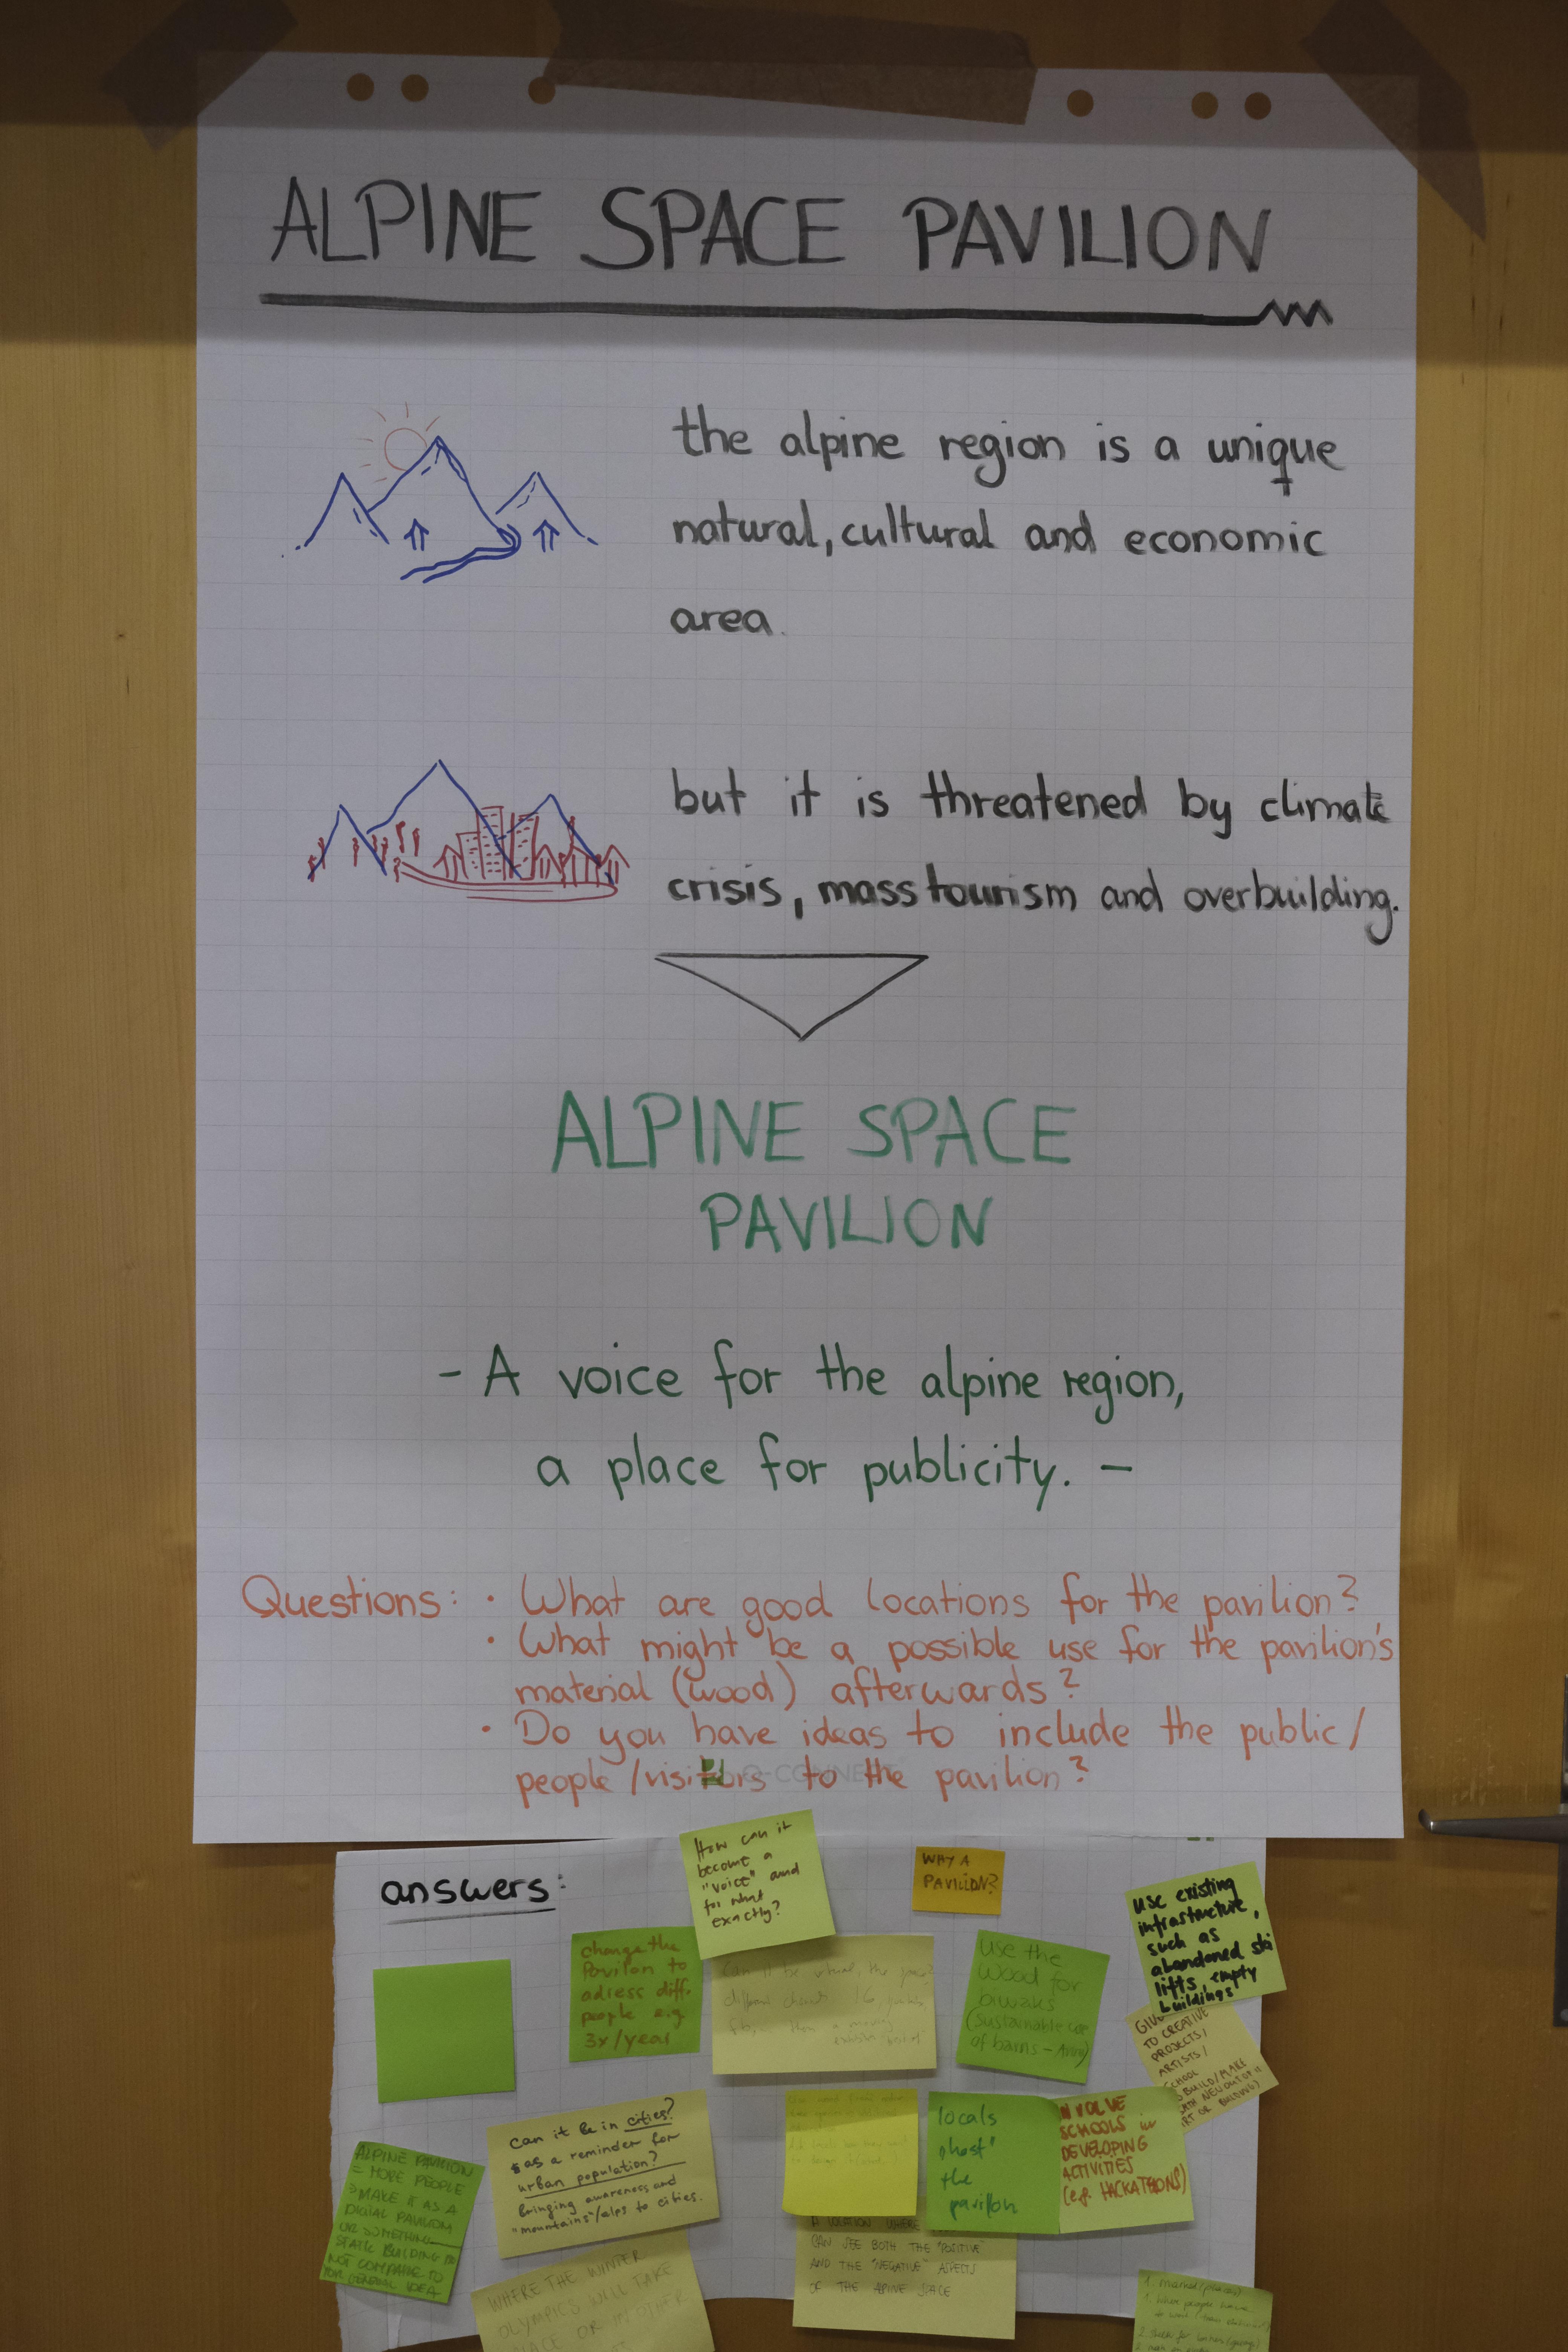 ALPINE SPACE PAVILION
the alpine region is a unique
natural, cultural and economic
area.
but it is threatened by climate
crisis, mass tourism and overbuilding.
ALPINE SPACE
PAVILION
- A voice for the alpine region,
a place for publicity. -
Questions: • What are good locations for the pavilion?
• What might be a possible use for the pavilion's
material (wood) afterwards?
• Do you have ideas to include the public/
people/visitors to the pavilion?
answers:
How can it
become a
"voice" and
for what
exactly?
WHY A
PAVILION?
use existing
infrastructure,
such as
abandoned ski
lifts, empty
buildings
change the
Pavilon to
adress diff.
people e.g.
3x/year
Can it be
different
use the
wood for
biwaks
(sustainable use
of barns -
TO CREATIVE
PROJECTS/
ARTISTS/
BUILD/MAKE
ALPINE PAVILION
= MORE PEOPLE
MAKE IT AS A
DIGITAL PAVILION
OR SOMETHING
STATIC BUILDING
NOT COMPARE TO
YOUR GENERAL IDEA
can it be in cities?
as a reminder for
urban population?
Bringing awareness and
"mountains"/alps to cities.
locals
"host"
the
pavillon
INVOLVE
SCHOOLS in
DEVELOPING
ACTIVITIES
(e.g. HACKATHONS)
A LOCATION WHERE
CAN SEE BOTH THE "POSITIVE"
AND THE "NEGATIVE" ASPECTS
OF THE ALPINE SPACE
WHERE THE WINTER
OLYMPICS WILL TAKE
PLACE OR IN OTHER
1. market
1. Where people have